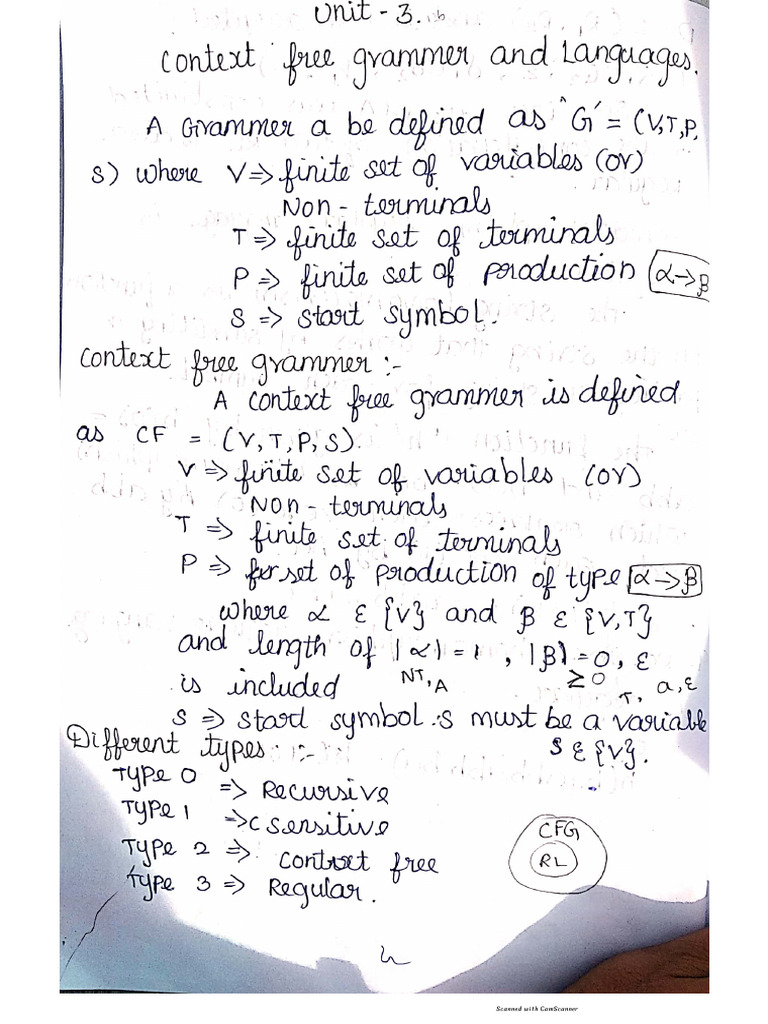 Unit - 3.
Context free grammer and Languages.
A Grammer a be defined as "G" = (V,T,P,
S) where V => finite set of variables (or)
Non - terminals
T => finite set of terminals
P => finite set of production α→β
S => start symbol.
Context free grammer :-
A context free grammer is defined
as CF = (V, T, P, S).
V => finite set of variables (or)
Non - terminals
T => finite set of terminals
P => set of production of type α→β
where α ε {V} and β ε {V,T}
and length of |α| = 1, |β| = 0, ε
is included NT, A ≥0 T, a, ε
S => start symbol. S must be a variable
Different types :- S ε {V}.
Type 0 => Recursive
Type 1 => C Sensitive
Type 2 => Context free
Type 3 => Regular.
CFG
RL
Scanned with CamScanner